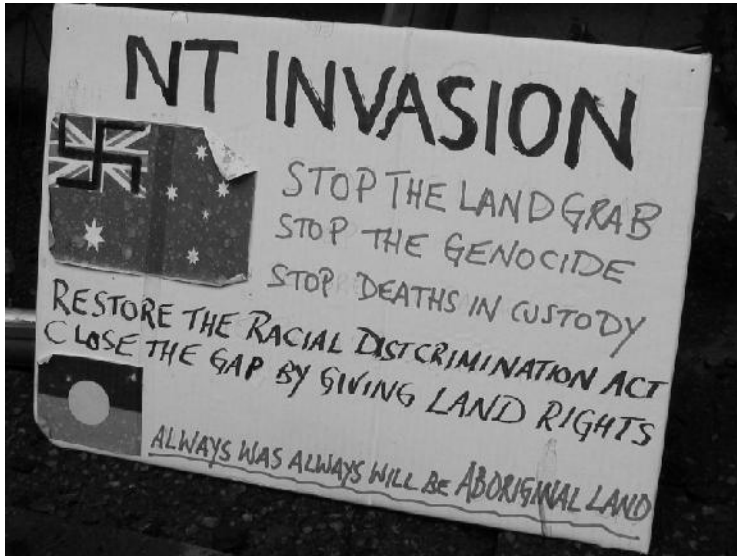 NT INVASION
STOP THE LAND GRAB
STOP THE GENOCIDE
STOP DEATHS IN CUSTODY
RESTORE THE RACIAL DISTCRIMINATION ACT
CLOSE THE GAP BY GIVING LAND RIGHTS
ALWAYS WAS ALWAYS WILL BE ABORIGINAL LAND